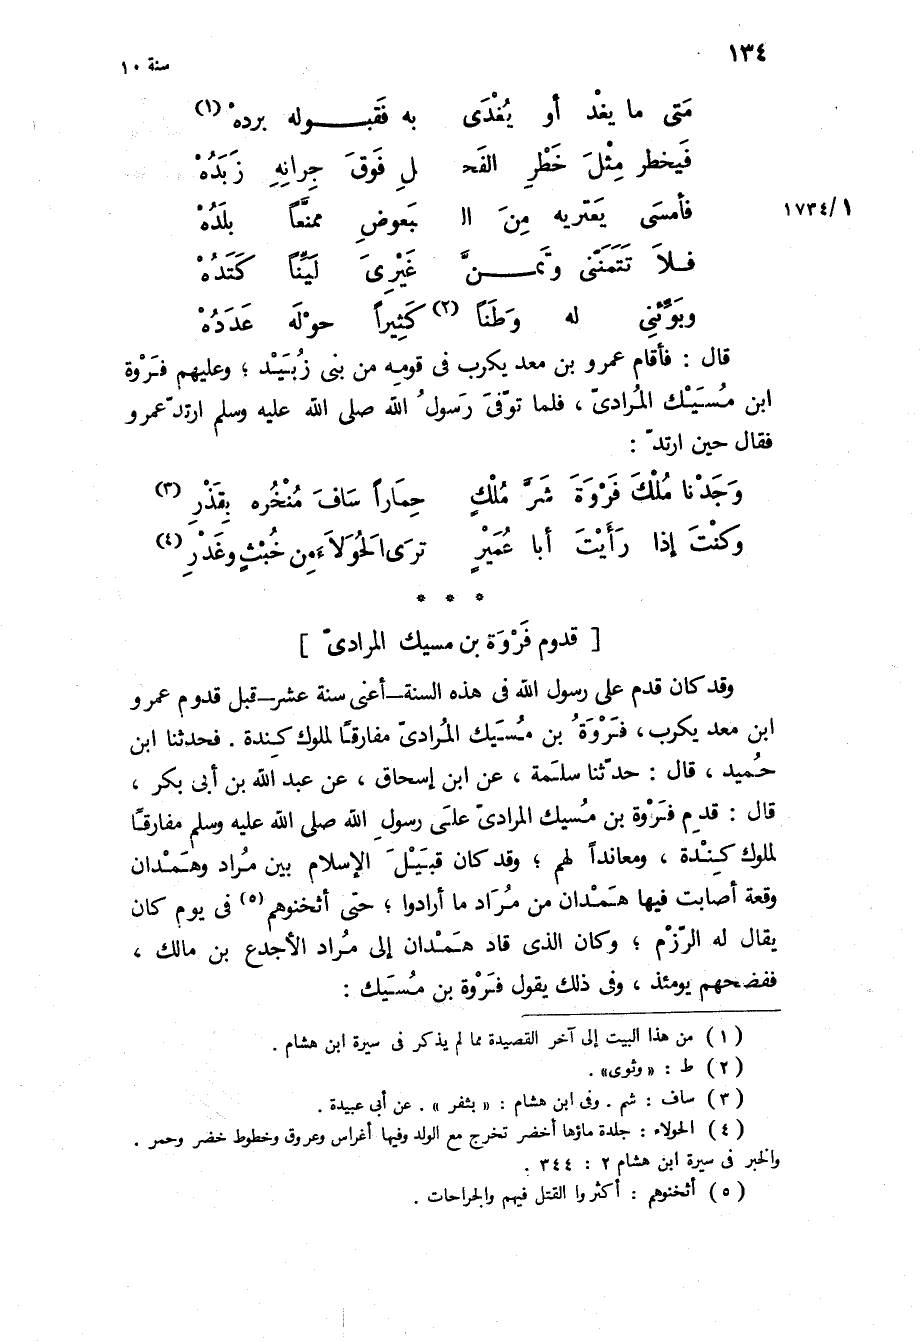 ١٣٤
سنة ١٠
مَتى ما يغْد أو يُغْدَى به فَقَبـــوله بردهْ (١)
فَيخطر مِثْلَ خَطْرِ الفَحـ لِ فَوقَ جِرانِهِ زَبَدُهْ
فأمسَى يَعتريه مِنَ الـ بَعوضِ ممنَّعاً بلَدُهْ
١/١٧٣٤
فـلاَ تَتَمَنَّنى وتمـــنَّ غَيْرِىَ لَيِّناً كَتَدُهْ
وبَوِّئنِى له وَطَنَاً (٢) كَثِيراً حوْلَه عَدَدُهْ
قال : فأقام عمرو بن معد يكرب فى قومِه من بنى زُبَيْد ؛ وعليهم فَرْوة
ابن مُسَيْك المُرادىّ ، فلما توّفىَ رَسولُ الله صلى الله عليه وسلم ارتدّ عمرو
فقال حين ارتدّ :
وَجَدْنا مُلْكَ فَرْوَةَ شَرَّ مُلْكٍ حِمَاراً سَافَ مُنْخُره بِقَذْرِ (٣)
وكنْتَ إذا رَأَيْتَ أبا عُمَيْرٍ ترَى الحُوَلاَءَ مِن خُبْثٍ وغَدْرِ (٤)
* * *
[ قدوم فَرْوَة بن مسيك المرادىّ ]
وقد كان قدم على رسول الله فى هذه السنة–أعنى سنة عشر–قبل قدوم عمرو
ابن معد يكرب، فَرْوَةُ بن مُسَيَك المُرادىّ مفارقًا لملوك كِندة . فحدثنا ابن
حُميد ، قال : حدّثنا سلَمة ، عن ابن إسحاق ، عن عبد الله بن أبى بكر ،
قال : قدِم فَرْوة بن مُسيك المرادىّ علَى رسولِ الله صلى الله عليه وسلم مفارقًا
لملوك كِنْدة ، ومعانداً لهم ؛ وقد كان قبَيْلَ الإسلام بين مُراد وهَمْدان
وقعة أصابت فيها هَمْدان من مُرَاد ما أرادوا ؛ حتى أثخنوهم (٥) فى يوم كان
يقال له الرّزْم ؛ وكان الذى قاد هَمْدان إلى مُراد الأجدع بن مالك ،
ففضحهم يومئذ ، وفى ذلك يقول فَرْوة بن مُسَيك :
(١) من هذا البيت إلى آخر القصيدة مما لم يذكر فى سيرة ابن هشام .
(٢) ط : « وثوى» .
(٣) ساف : شم . وفى ابن هشام : « بثفر » . عن أبى عبيدة .
(٤) الحولاء : جلدة ماؤها أخضر تخرج مع الولد وفيها أغراس وعروق وخطوط خضر وحمر .
والخبر فى سيرة ابن هشام ٢ : ٣٤٤ .
(٥) أثخنوهم : أكثروا القتل فيهم والجراحات .